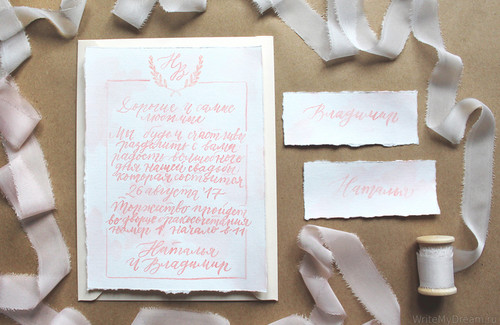 НВ
Дорогие и самые
любимые
Мы будем счастливы
разделить с вами
радость волшебного
дня нашей свадьбы
которая состоится
26 августа '17
Торжество пройдет
во дворце бракосочетания
номер 1 начало в 11
Наталья
и Владимир
Владимир
Наталья
WriteMyDream.ru